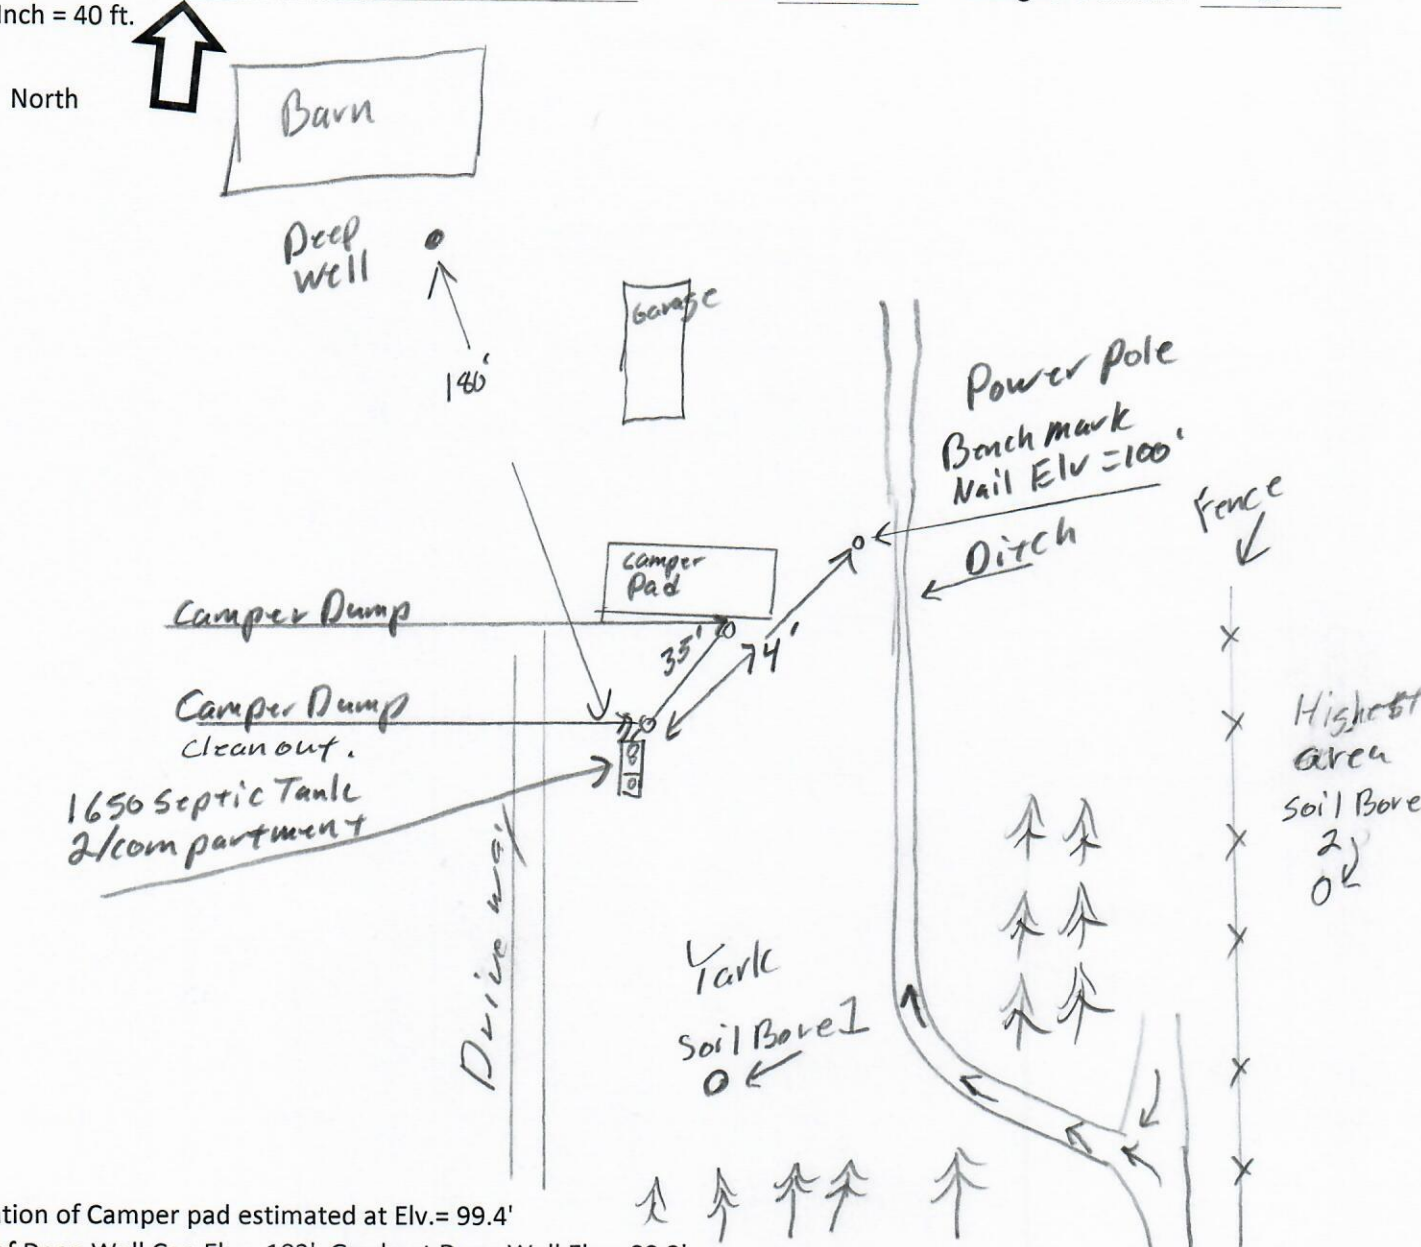 Inch = 40 ft.
North
Barn
Deep
well
Garage
180'
Power Pole
Bench mark
Nail Elv = 100'
Fence
Ditch
Camper
Pad
Camper Dump
35'
74'
Camper Dump
Cleanout.
1650 Septic Tank
2/compartment
Highest
area
Soil Bore
2
Driveway
Yark
Soil Bore 1
tion of Camper pad estimated at Elv.= 99.4'